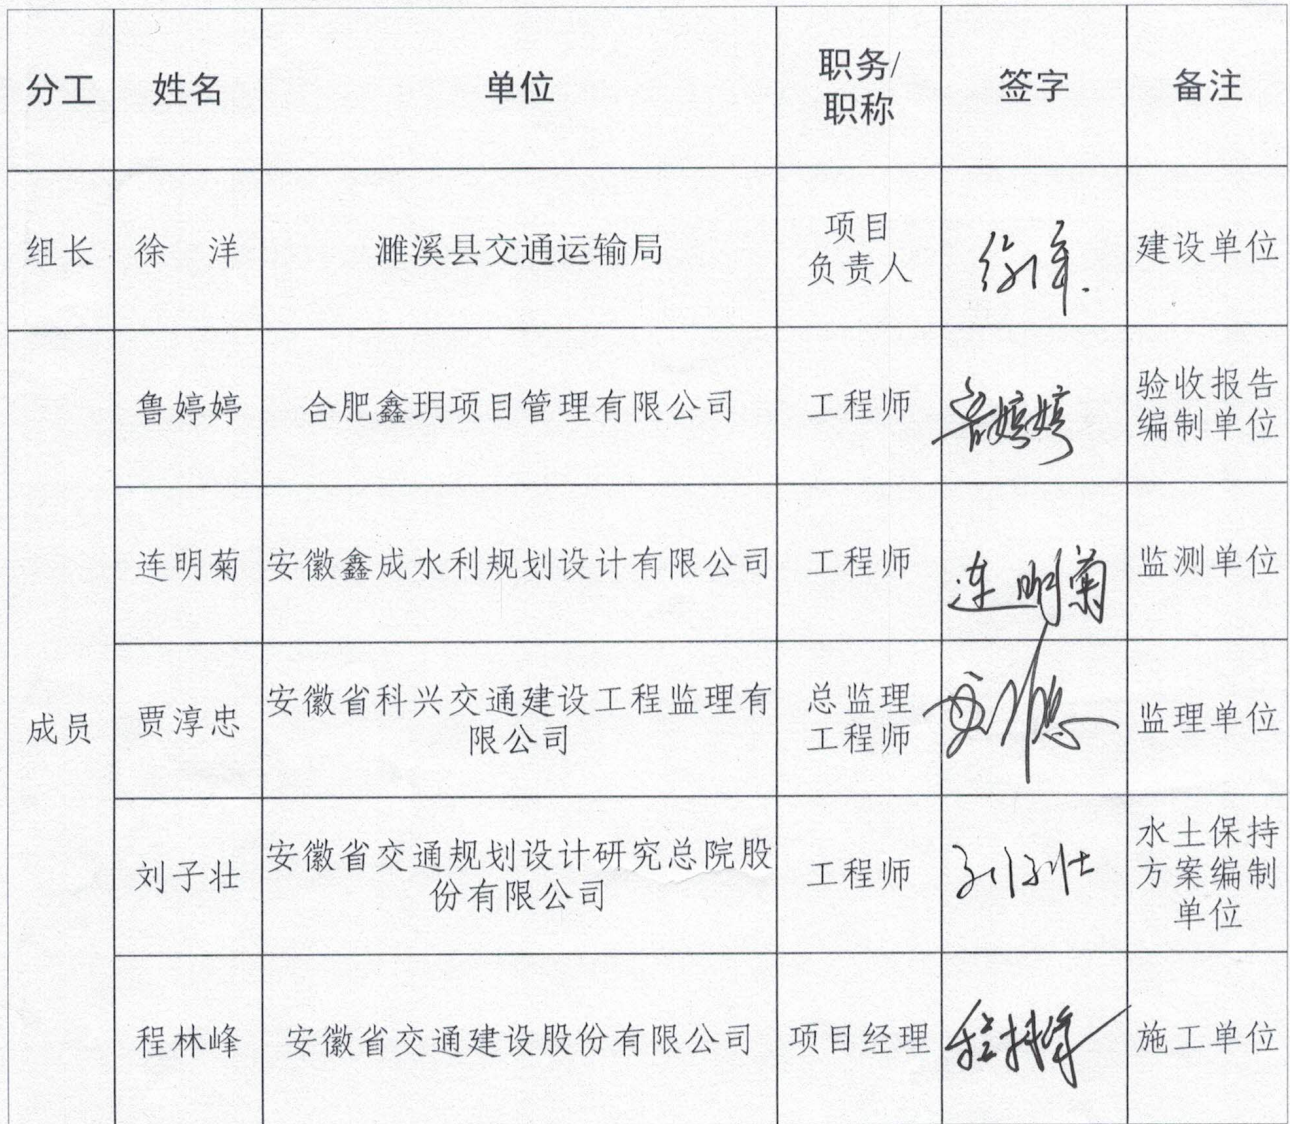 分工 姓名 单位 职务/职称 签字 备注
组长 徐 洋 濉溪县交通运输局 项目负责人 徐洋 建设单位
成员
鲁婷婷 合肥鑫玥项目管理有限公司 工程师 鲁婷婷 验收报告编制单位
连明菊 安徽鑫成水利规划设计有限公司 工程师 连明菊 监测单位
贾淳忠 安徽省科兴交通建设工程监理有限公司 总监理工程师 监理单位
刘子壮 安徽省交通规划设计研究总院股份有限公司 工程师 刘子壮 水土保持方案编制单位
程林峰 安徽省交通建设股份有限公司 项目经理 程林峰 施工单位